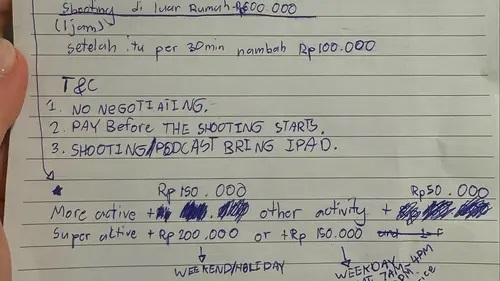 Shooting di luar Rumah Rp600.000
(1 jam)
setelah itu per 30min nambah Rp100.000
T&C
1. NO NEGOTIATIING.
2. PAY Before THE SHOOTING STARTS.
3. SHOOTING/PODCAST BRING IPAD.
Rp150.000 Rp50.000
More active + other activity +
Super aktive + Rp 200.000 or +Rp 150.000
WEEKEND/HOLIDAY
WEEKDAY
7AM - 4PM